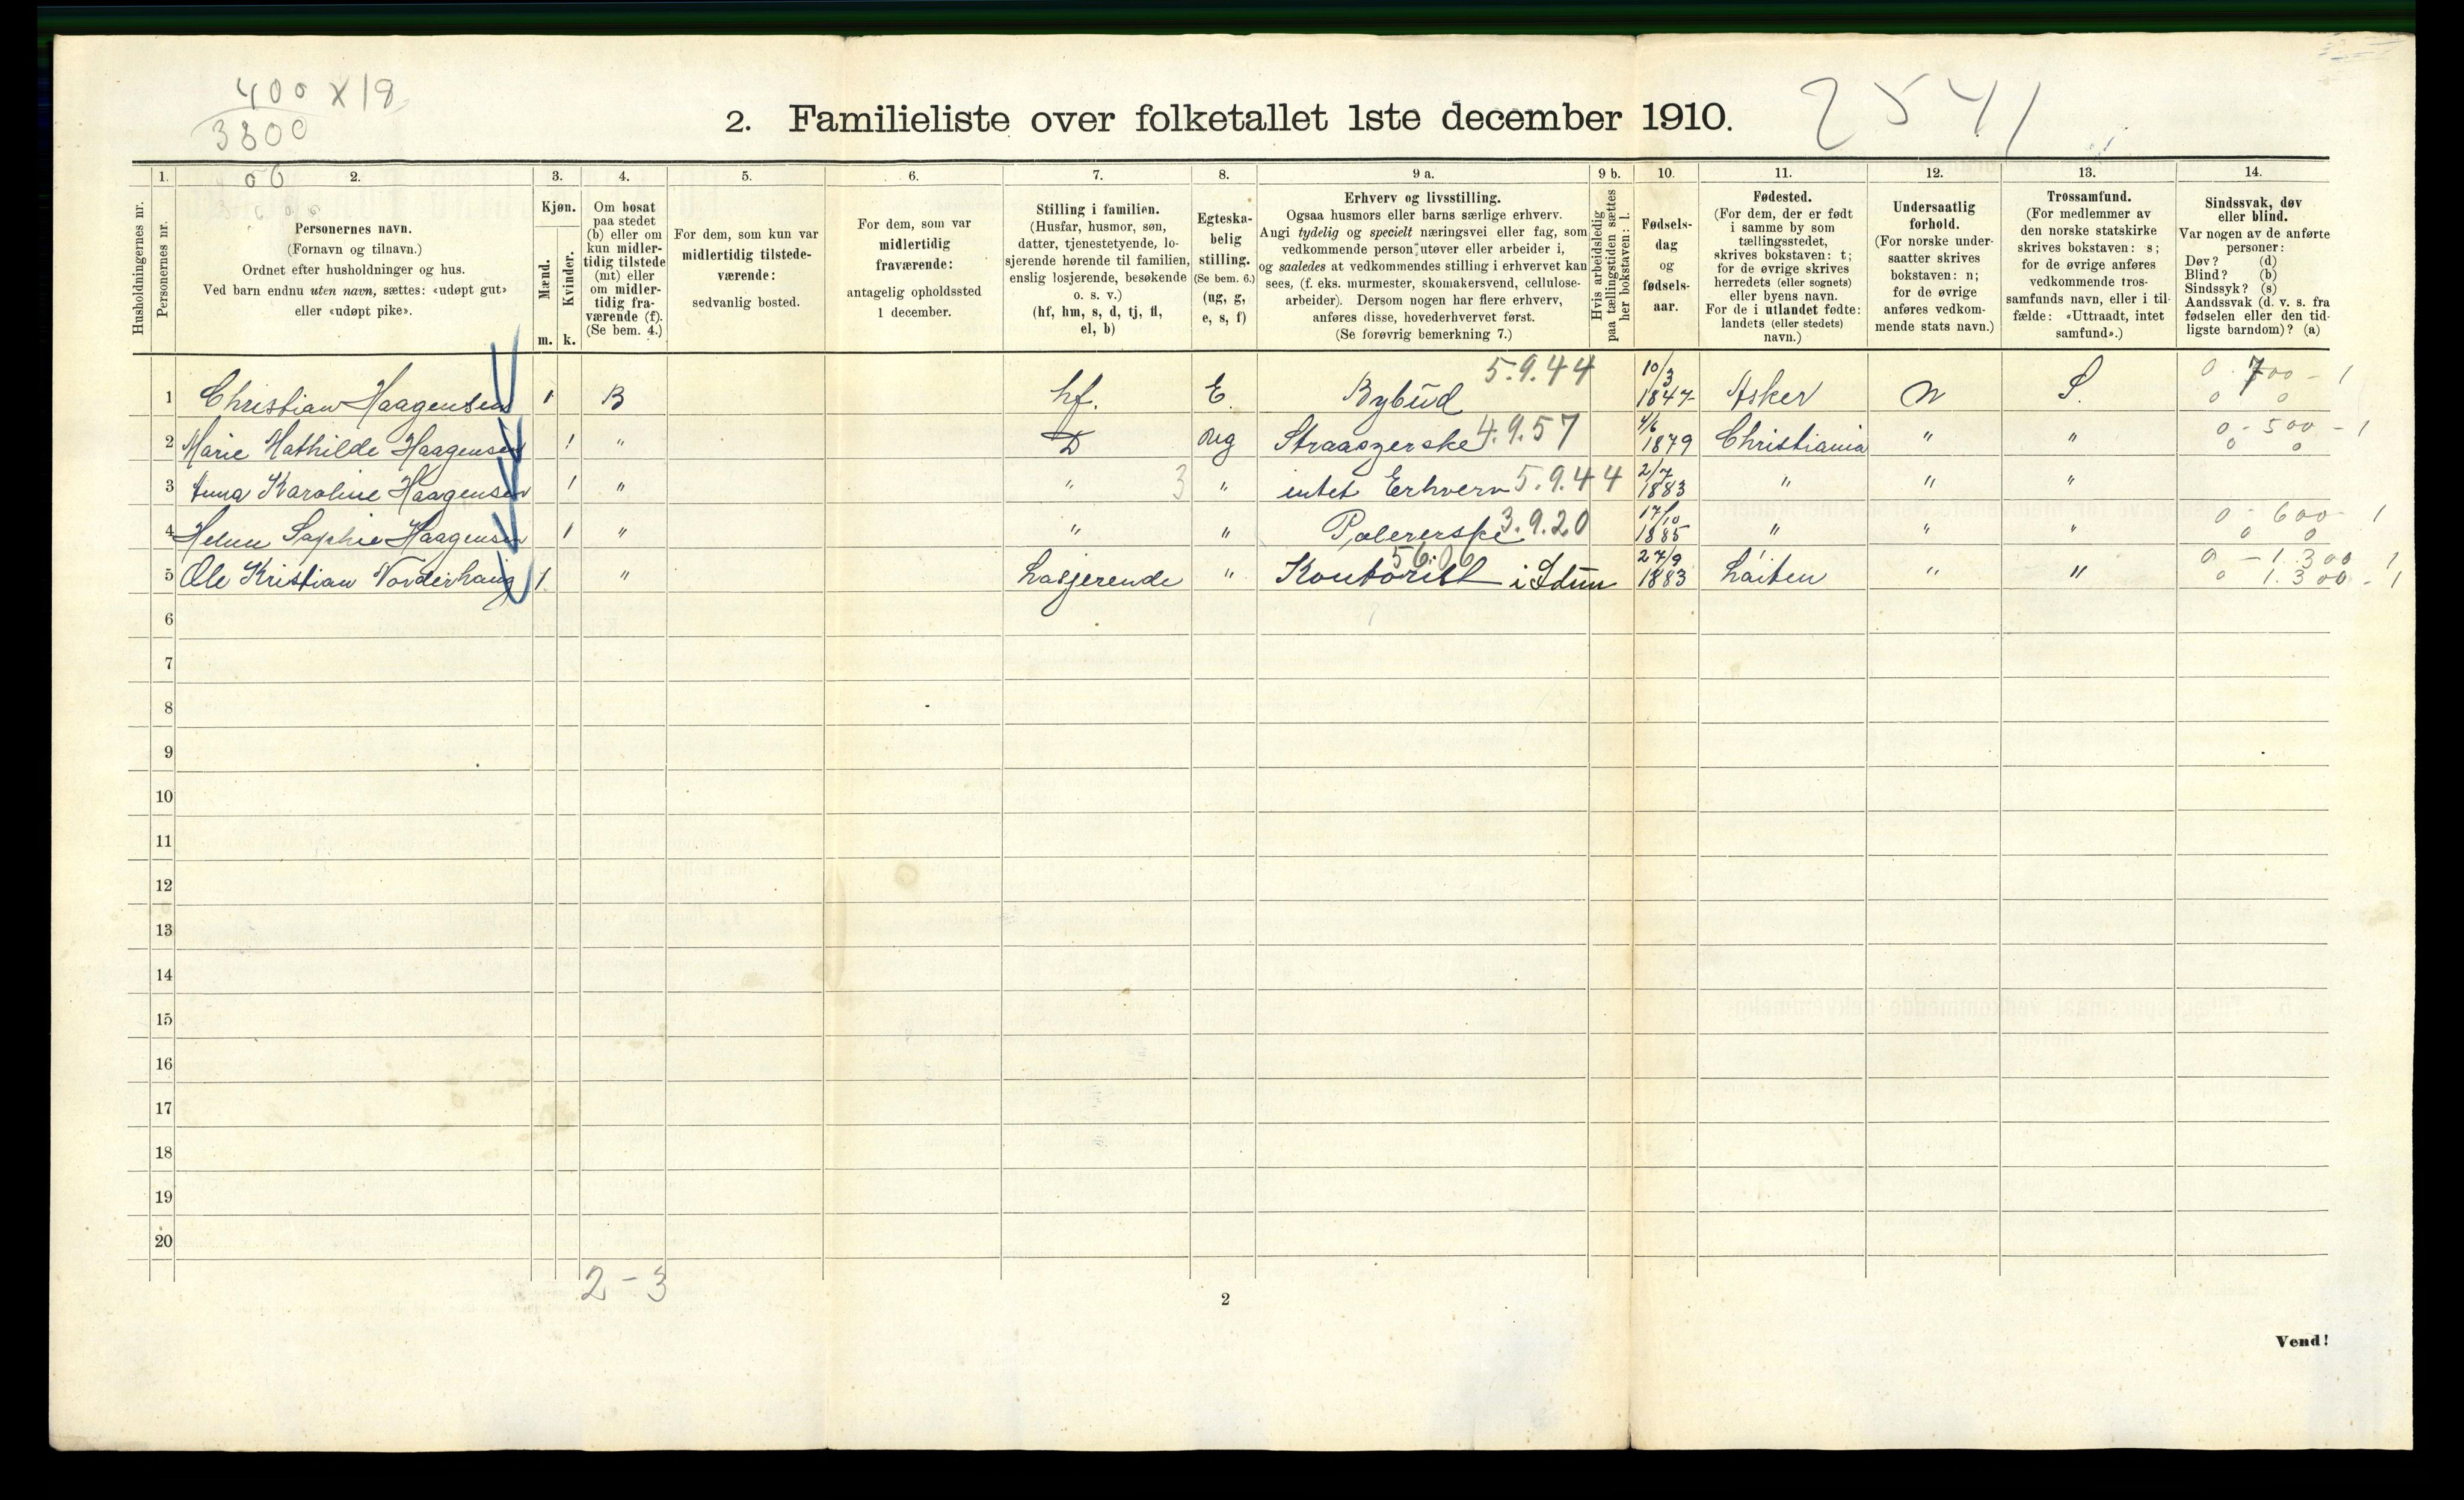 400 x 18
3800
2541
2. Familieliste over folketallet 1ste december 1910.
1. 2. 3. 4. 5. 6. 7. 8. 9 a. 9 b. 10. 11. 12. 13. 14.
Husholdningernes nr.
Personernes nr.
Personernes navn.
(Fornavn og tilnavn.)
Ordnet efter husholdninger og hus.
Ved barn endnu uten navn, sættes: «udøpt gut»
eller «udøpt pike».
Kjøn.
Mænd.
Kvinder.
m. k.
Om bosat
paa stedet
(b) eller om
kun midler-
tidig tilstede
(mt) eller
om midler-
tidig fra-
værende (f).
(Se bem. 4.)
For dem, som kun var
midlertidig tilstede-
værende:
sedvanlig bosted.
For dem, som var
midlertidig
fraværende:
antagelig opholdssted
1 december.
Stilling i familien.
(Husfar, husmor, søn,
datter, tjenestetyende, lo-
sjerende hørende til familien,
enslig losjerende, besøkende
o. s. v.)
(hf, hm, s, d, tj, fl,
el, b)
Egteska-
belig
stilling.
(Se bem. 6.)
(ug, g,
e, s, f)
Erhverv og livsstilling.
Ogsaa husmors eller barns særlige erhverv.
Angi tydelig og specielt næringsvei eller fag, som
vedkommende person utøver eller arbeider i,
og saaledes at vedkommendes stilling i erhvervet kan
sees, (f. eks. murmester, skomakersvend, cellulose-
arbeider). Dersom nogen har flere erhverv,
anføres disse, hovederhvervet først.
(Se forøvrig bemerkning 7.)
Hvis arbeidsledig
paa tællingstiden sættes
her bokstaven: l.
Fødsels-
dag
og
fødsels-
aar.
Fødested.
(For dem, der er født
i samme by som
tællingsstedet,
skrives bokstaven: t;
for de øvrige skrives
herredets (eller sognets)
eller byens navn.
For de i utlandet fødte:
landets (eller stedets)
navn.)
Undersaatlig
forhold.
(For norske under-
saatter skrives
bokstaven: n;
for de øvrige
anføres vedkom-
mende stats navn.)
Trossamfund.
(For medlemmer av
den norske statskirke
skrives bokstaven: s;
for de øvrige anføres
vedkommende tros-
samfunds navn, eller i til-
fælde: «Uttraadt, intet
samfund».)
Sindssvak, døv
eller blind.
Var nogen av de anførte
personer:
Døv? (d)
Blind? (b)
Sindssyk? (s)
Aandssvak (d. v. s. fra
fødselen eller den tid-
ligste barndom)? (a)
1 Christian Haagensen 1 B hf. E. Bybud 5.9.44 10/3 1847 Asker N S. 0 - 700 - 1 0 0
2 Marie Mathilde Haagensen 1 " D Ug 4.9.57 4/6 1879 Christiania " " 0 - 500 - 1 0 0
3 Anna Karoline Haagensen 1 " " 3 " intet Erhverv 5.9.44 2/7 1883 " " "
4 Helene Sophie Haagensen 1 " " " Polererske 3.9.20 17/10 1885 " " " 0 - 600 - 1 0 0
5 Ole Kristian Norderhaug 1 " Losjerende " Kontorist i Idun 56.06 27/9 1883 Løiten " " 0 - 1.300 1 0 1.300 - 1
6
7
8
9
10
11
12
13
14
15
16
17
18
19
20
2 - 3
2
Vend!